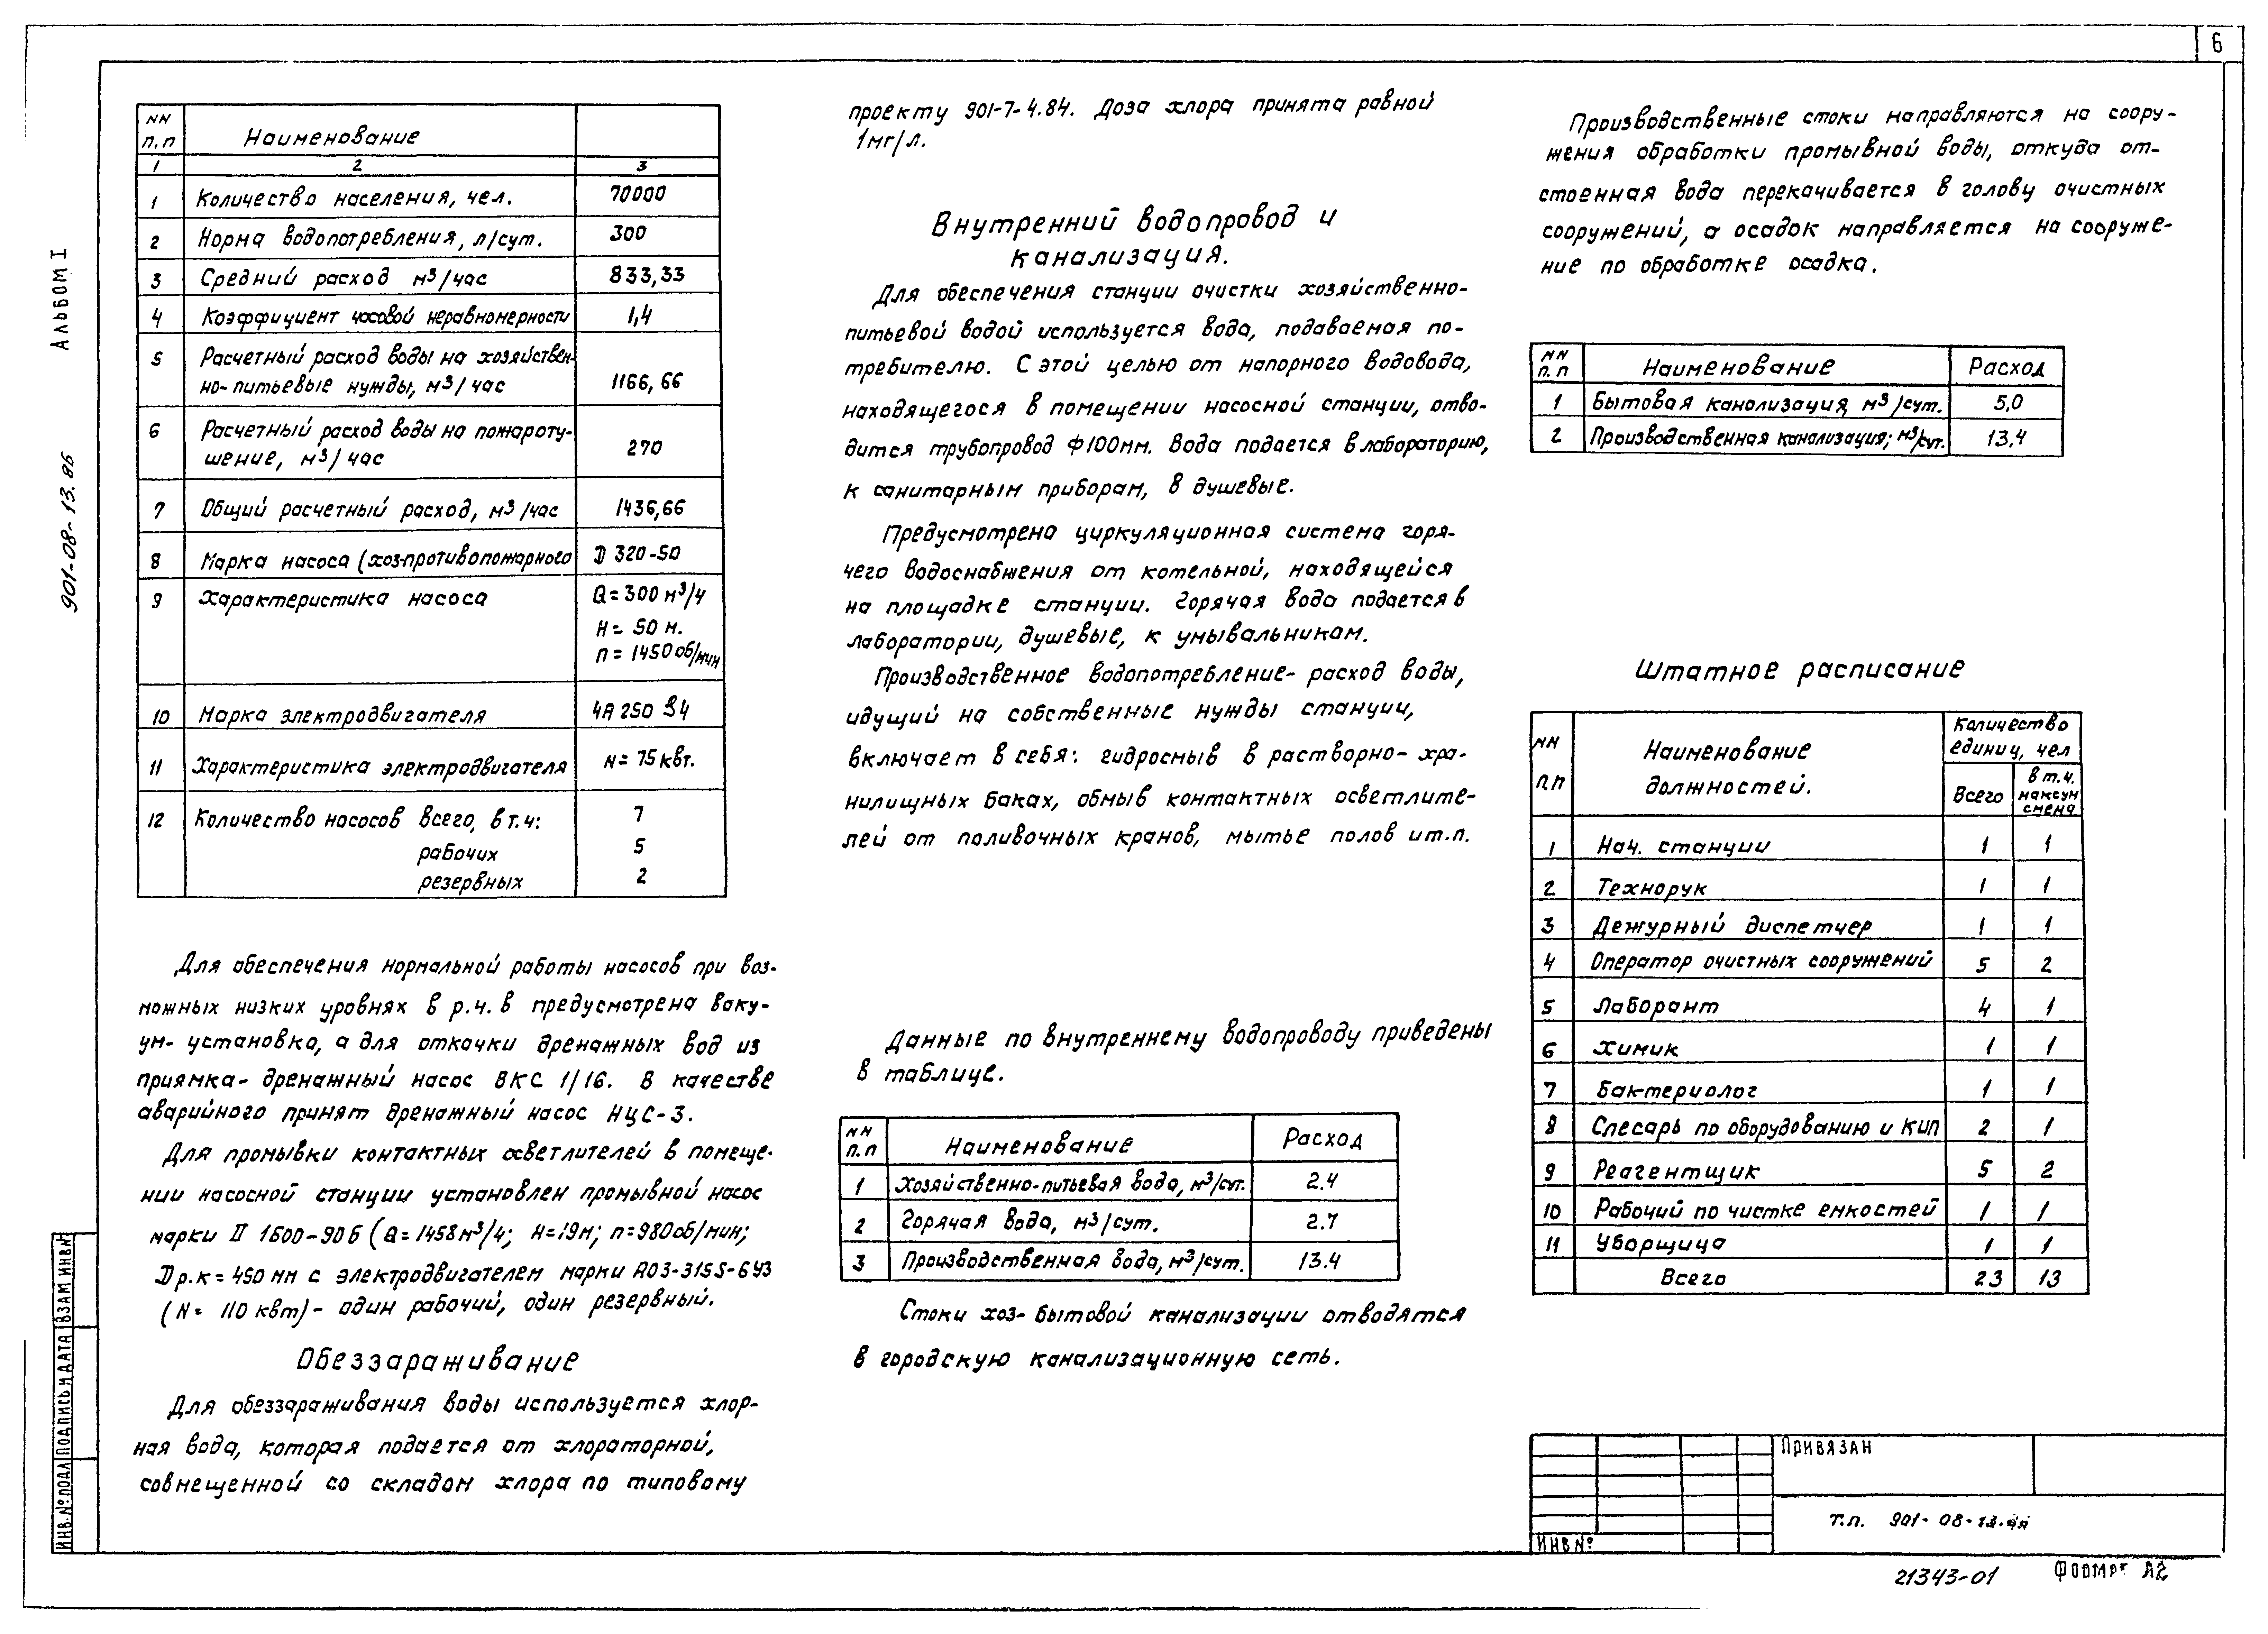 6
АЛЬБОМ I
901-08-13.86
NN п.п | Наименование
1 | 2 | 3
1 | Количество населения, чел. | 70000
2 | Норма водопотребления, л/сут. | 300
3 | Средний расход м³/час | 833,33
4 | Коэффициент часовой неравномерности | 1,4
5 | Расчетный расход воды на хозяйствен-
но-питьевые нужды, м³/час | 1166,66
6 | Расчетный расход воды на пожароту-
шение, м³/час | 270
7 | Общий расчетный расход, м³/час | 1436,66
8 | Марка насоса (хоз-противопожарного | Д 320-50
9 | Характеристика насоса | Q=300 м³/ч
H= 50 м.
n=1450 об/мин
10 | Марка электродвигателя | 4А 250 S4
11 | Характеристика электродвигателя | N=75 квт.
12 | Количество насосов всего, в т.ч: | 7
рабочих | 5
резервных | 2
Для обеспечения нормальной работы насосов при воз-
можных низких уровнях в р.ч.в предусмотрена ваку-
ум-установка, а для откачки дренажных вод из
приямка-дренажный насос ВКС 1/16. В качестве
аварийного принят дренажный насос НЦС-3.
Для промывки контактных осветлителей в помеще-
нии насосной станции установлен промывной насос
марки Д 1600-90б (Q=1458м³/ч; H=19м; n=980об/мин;
Dр.к=450 мм с электродвигателем марки А03-315S-6У3
(N= 110 квт)- один рабочий, один резервный.
Обеззараживание
Для обеззараживания воды используется хлор-
ная вода, которая подается от хлораторной,
совмещенной со складом хлора по типовому
проекту 901-7-4.84. Доза хлора принята равной
1мг/л.
Внутренний водопровод и
канализация.
Для обеспечения станции очистки хозяйственно-
питьевой водой используется вода, подаваемая по-
требителю. С этой целью от напорного водовода,
находящегося в помещении насосной станции, отво-
дится трубопровод Ф100мм. Вода подается в лабораторию,
к санитарным приборам, в душевые.
Предусмотрена циркуляционная система горя-
чего водоснабжения от котельной, находящейся
на площадке станции. Горячая вода подается в
лаборатории, душевые, к умывальникам.
Производственное водопотребление- расход воды,
идущий на собственные нужды станции,
включает в себя: гидросмыв в растворно-хра-
нилищных баках, обмыв контактных осветлите-
лей от поливочных кранов, мытье полов и т.п.
Данные по внутреннему водопроводу приведены
в таблице.
NN п.п | Наименование | Расход
1 | Хозяйственно-питьевая вода, м³/сут. | 2.4
2 | Горячая вода, м³/сут. | 2.7
3 | Производственная вода, м³/сут. | 13.4
Стоки хоз-бытовой канализации отводятся
в городскую канализационную сеть.
Производственные стоки направляются на соору-
жения обработки промывной воды, откуда от-
стоенная вода перекачивается в голову очистных
сооружений, а осадок направляется на сооруже-
ние по обработке осадка.
NN п.п | Наименование | Расход
1 | Бытовая канализация, м³/сут. | 5,0
2 | Производственная канализация; м³/сут. | 13,4
Штатное расписание
NN п.п | Наименование должностей. | Количество единиц, чел
Всего | в т.ч. максим смена
1 | Нач. станции | 1 | 1
2 | Технорук | 1 | 1
3 | Дежурный диспетчер | 1 | 1
4 | Оператор очистных сооружений | 5 | 2
5 | Лаборант | 4 | 1
6 | Химик | 1 | 1
7 | Бактериолог | 1 | 1
8 | Слесарь по оборудованию и КИП | 2 | 1
9 | Реагентщик | 5 | 2
10 | Рабочий по чистке емкостей | 1 | 1
11 | Уборщица | 1 | 1
Всего | 23 | 13
ИНВ.№ПОДЛ ПОДПИСЬ И ДАТА ВЗАМ ИНВ№
Привязан
ИНВ №
т.п. 901-08-13.
21343-01
Формат А2